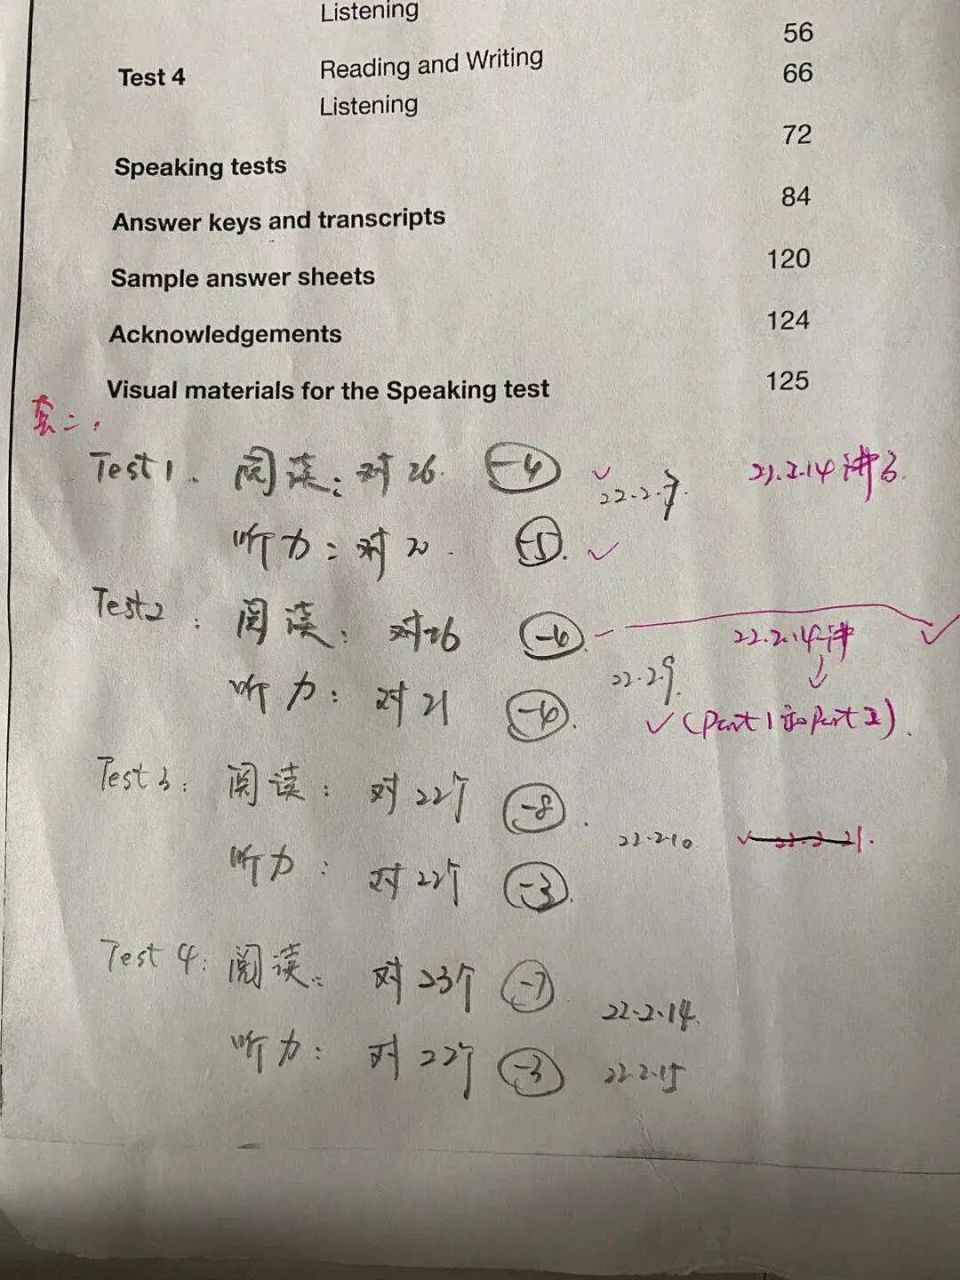 Listening
56
Test 4 Reading and Writing 66
Listening
72
Speaking tests
84
Answer keys and transcripts
120
Sample answer sheets
124
Acknowledgements
125
Visual materials for the Speaking test
套二:
Test1. 阅读: 对26. -4 ✓ 22.2.7. 22.2.14讲了.
听力: 对20. -5. ✓
Test2: 阅读: 对26 -6 22.2.14讲 ✓
听力: 对21 -6. 22.2.9. ✓(Part1和Part2).
Test3: 阅读: 对22个 -8.
22.2.10. ✓
听力: 对22个 -3.
Test4: 阅读: 对23个 -7 22.2.14.
听力: 对22个 -3 22.2.15